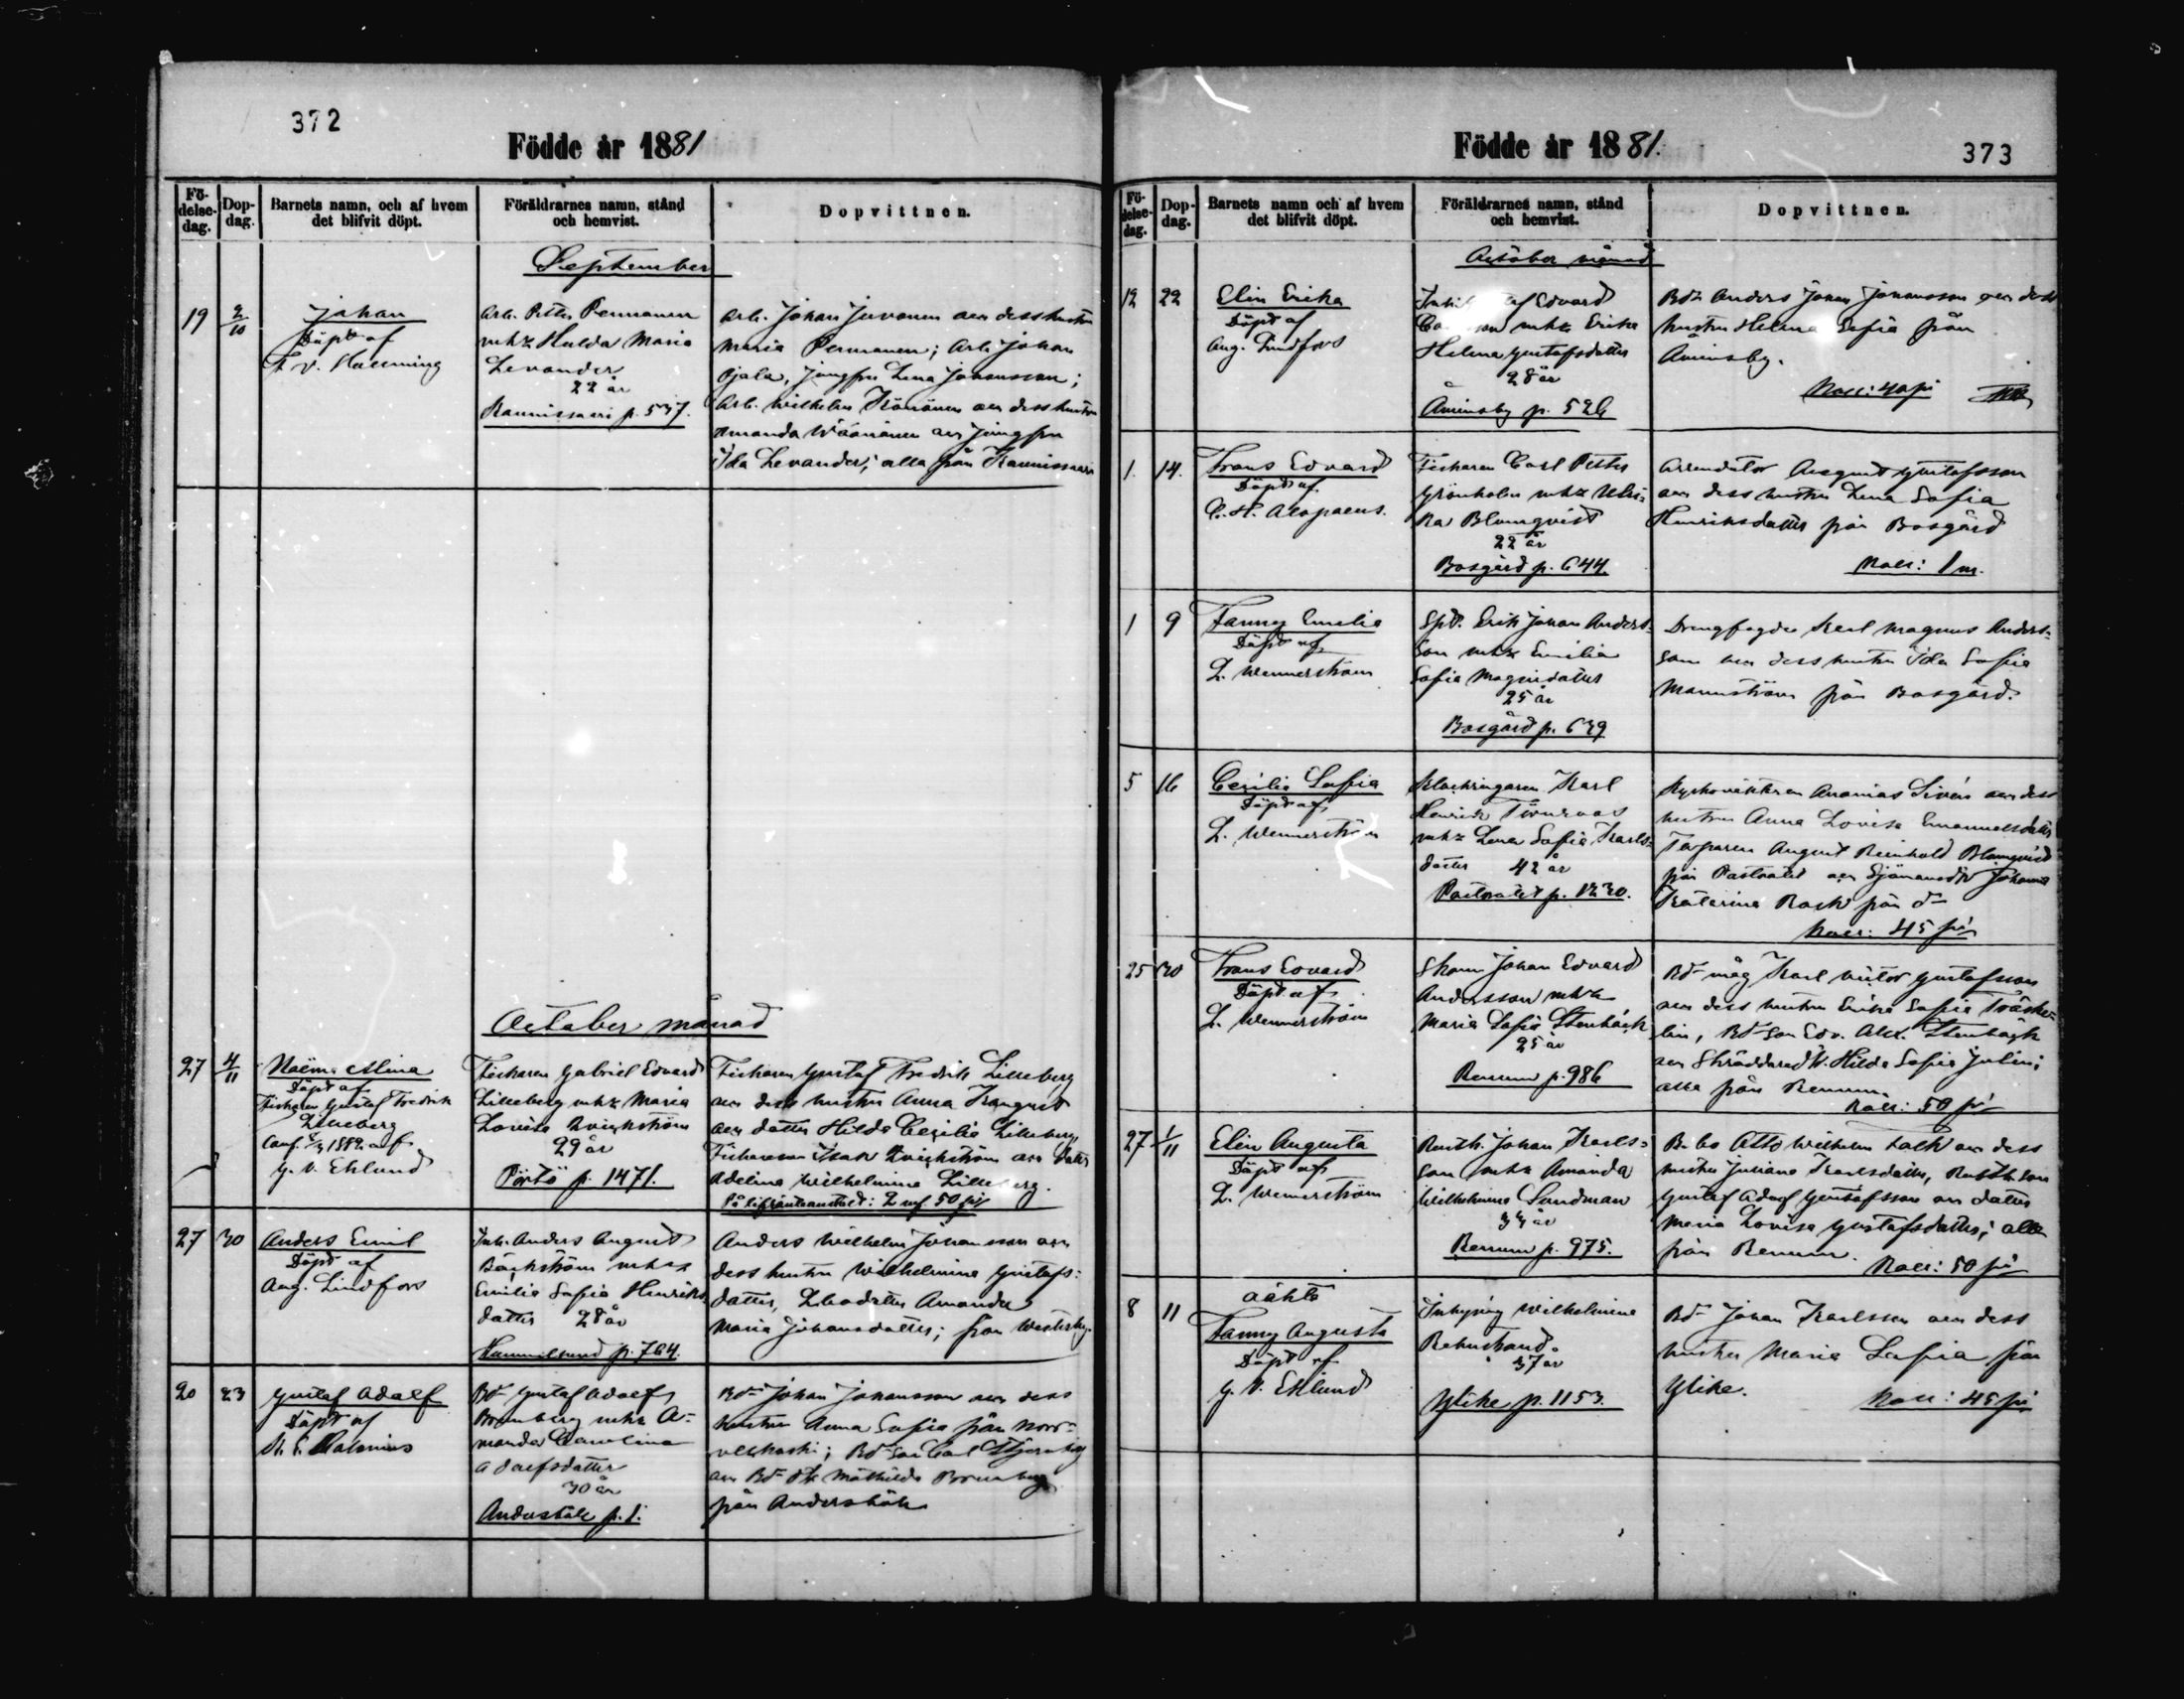 372
Födde år 1881
Fö-
delse-
dag.
Dop-
dag.
Barnets namn, och af hvem
det blifvit döpt.
Föräldrarnes namn, stånd
och hemvist.
Dopvittnen.
September
19
2/10
Johan
Döpt af
F. V. Hemming
Arb. Petter Pennanen
mhz Hulda Maria
Levander
22 år
p. 537.
Arb. Johan Juvonen och dess hustru
Maria Pennanen; Arb. Johan
Pjala, jungfru Lena Johansson;
Arb. Wilhelm och dess hustru
Amanda Wäänänen och jungfru
Ida Levander; alla från
October månad
27
4/11
Naëmi Mina
Döpt af
Fiskaren Gustaf Fredrik
Lilleberg
Conf. 1882 af
G. V. Ehlund
Fiskaren Gabriel Edvard
Lilleberg mhz Maria
Lovisa Qvickström
29 år
Pörtö p. 1471.
Fiskaren Gustaf Fredrik Lilleberg
och dess hustru Anna
och dotter Hilda Cecilia Lilleberg,
Fiskareson Isak Qvickström och dotter
Adelina Wilhelmina Lilleberg.
2 mf 50 pi
27
30
Anders Emil
Döpt af
Aug. Lindfors
Inh. Anders August
Bäckström mhz
Emilia Sofia Henriks
dotter 28 år
p. 764.
Anders Wilhelm Johansson och
dess hustru Wilhelmina Gustafs-
dotter, Amanda
Maria Johansdotter; från Westerby.
20
23
Gustaf Adolf
Döpt af
Bd Gustaf Adolf
mhz A-
manda Carolina
Adolfsdotter
30 år
Andersböle p. 1.
Bd Johan Johansson och dess
hustru Anna Sofia från Norr-
veckoski; Bd son Carl
och Bd Mathilda
från Andersböle
Födde år 1881.
373
Fö-
delse-
dag.
Dop-
dag.
Barnets namn och af hvem
det blifvit döpt.
Föräldrarnes namn, stånd
och hemvist.
Dopvittnen.
October månad
12
22
Elin Erika
Döpt af
Aug. Lindfors
Edvard
mhz Erika
Helena Gustafsdotter
28 år
Åminsby p. 526
Bd Anders Johan Johansson och dess
hustru Helena Sofia från
Åminsby.
Koll: 40 pi
1.
14.
Frans Edvard
Döpt af
C. H. Alopaeus.
Fiskaren Carl Petter
Grönholm mhz Ulri-
ka Blomqvist
22 år
Bosgård p. 644.
Arrendator August Gustafsson
och dess hustru Lena Sofia
Henriksdotter från Bosgård
Koll: 1 m.
1
9
Fanny Emilia
Döpt af
L. Wennerström
Spt. Erik Johan Anders-
son mhz Emilia
Sofia Magnidotter
25 år
Bosgård p. 639
Drengfogden Karl Magnus Anders-
son och dess hustru Ida Sofia
Mannström från Bosgård.
5
16
Cecilia Sofia
Döpt af
L. Wennerström
Klockringaren Karl
Henrik Törnroos
mhz Lena Sofia Karls-
dotter 42 år
Pastoratet p. 1230.
Kyrkovaktaren Ananias Sirén och dess
hustru Anna Lovisa Emanuelsdotter
Torparen August Reinhold Blomqvist
från Pastoratet och Sjömansd Johanna
Katarina Rask från d:o
Koll: 45 pi
25
30
Frans Edvard
Döpt af
L. Wennerström
Skom Johan Edvard
Andersson mhz
Maria Sofia Stenbäck
25 år
Renum p. 986
Bd måg Karl Victor Gustafsson
och dess hustru Erika Sofia Träske-
lin, Bd son Edv. Alex. Stenbäck
och Skräddared Hilda Sofia Julin;
alla från Renum.
Koll: 50 pi
27
1/11
Elin Augusta
Döpt af
L. Wennerström
Rusth. Johan Karls-
son mhz Amanda
Wilhelmina Sundman
33 år
Renum p. 975.
Otto Wilhelm Falk och dess
hustru Juliana Karlsdotter, Rusth son
Gustaf Adolf Gustafsson och dotter
Maria Lovisa Gustafsdotter; alla
från Renum. Koll: 50 pi
8
11
oäkta
Fanny Augusta
Döpt af
G. V. Ehlund
Wilhelmina
37 år
Ylike p. 1153.
Bd Johan Karlsson och dess
hustru Maria Sofia från
Ylike. Koll: 45 pi